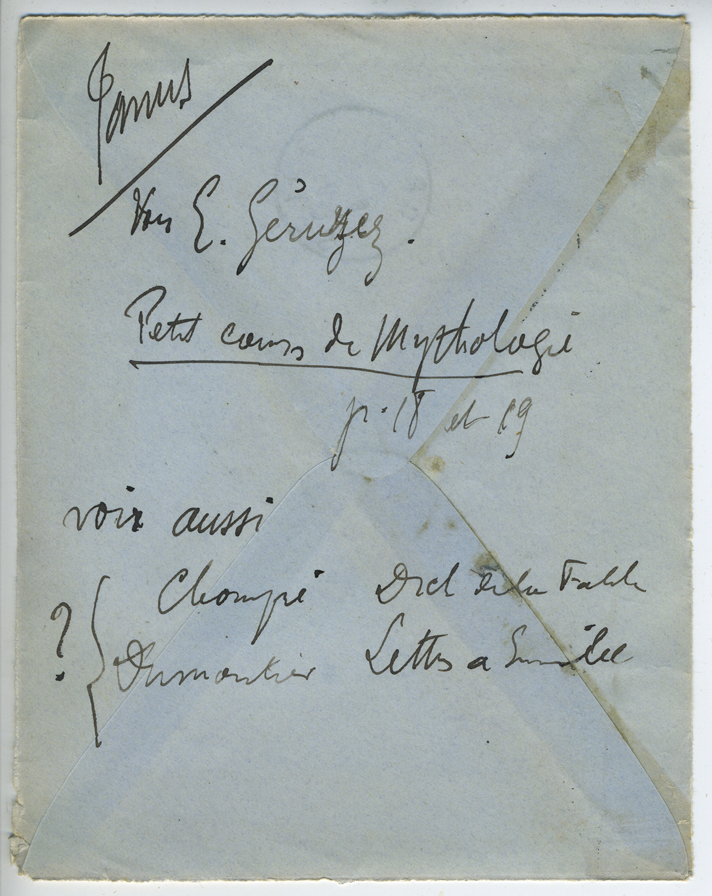 Janus
Voir E. Géruzez.
Petit cours de Mythologie
p. 18 et 19
voir aussi
? { Chompré Dict de la Fable
Dumoustier Lettres a Emilie